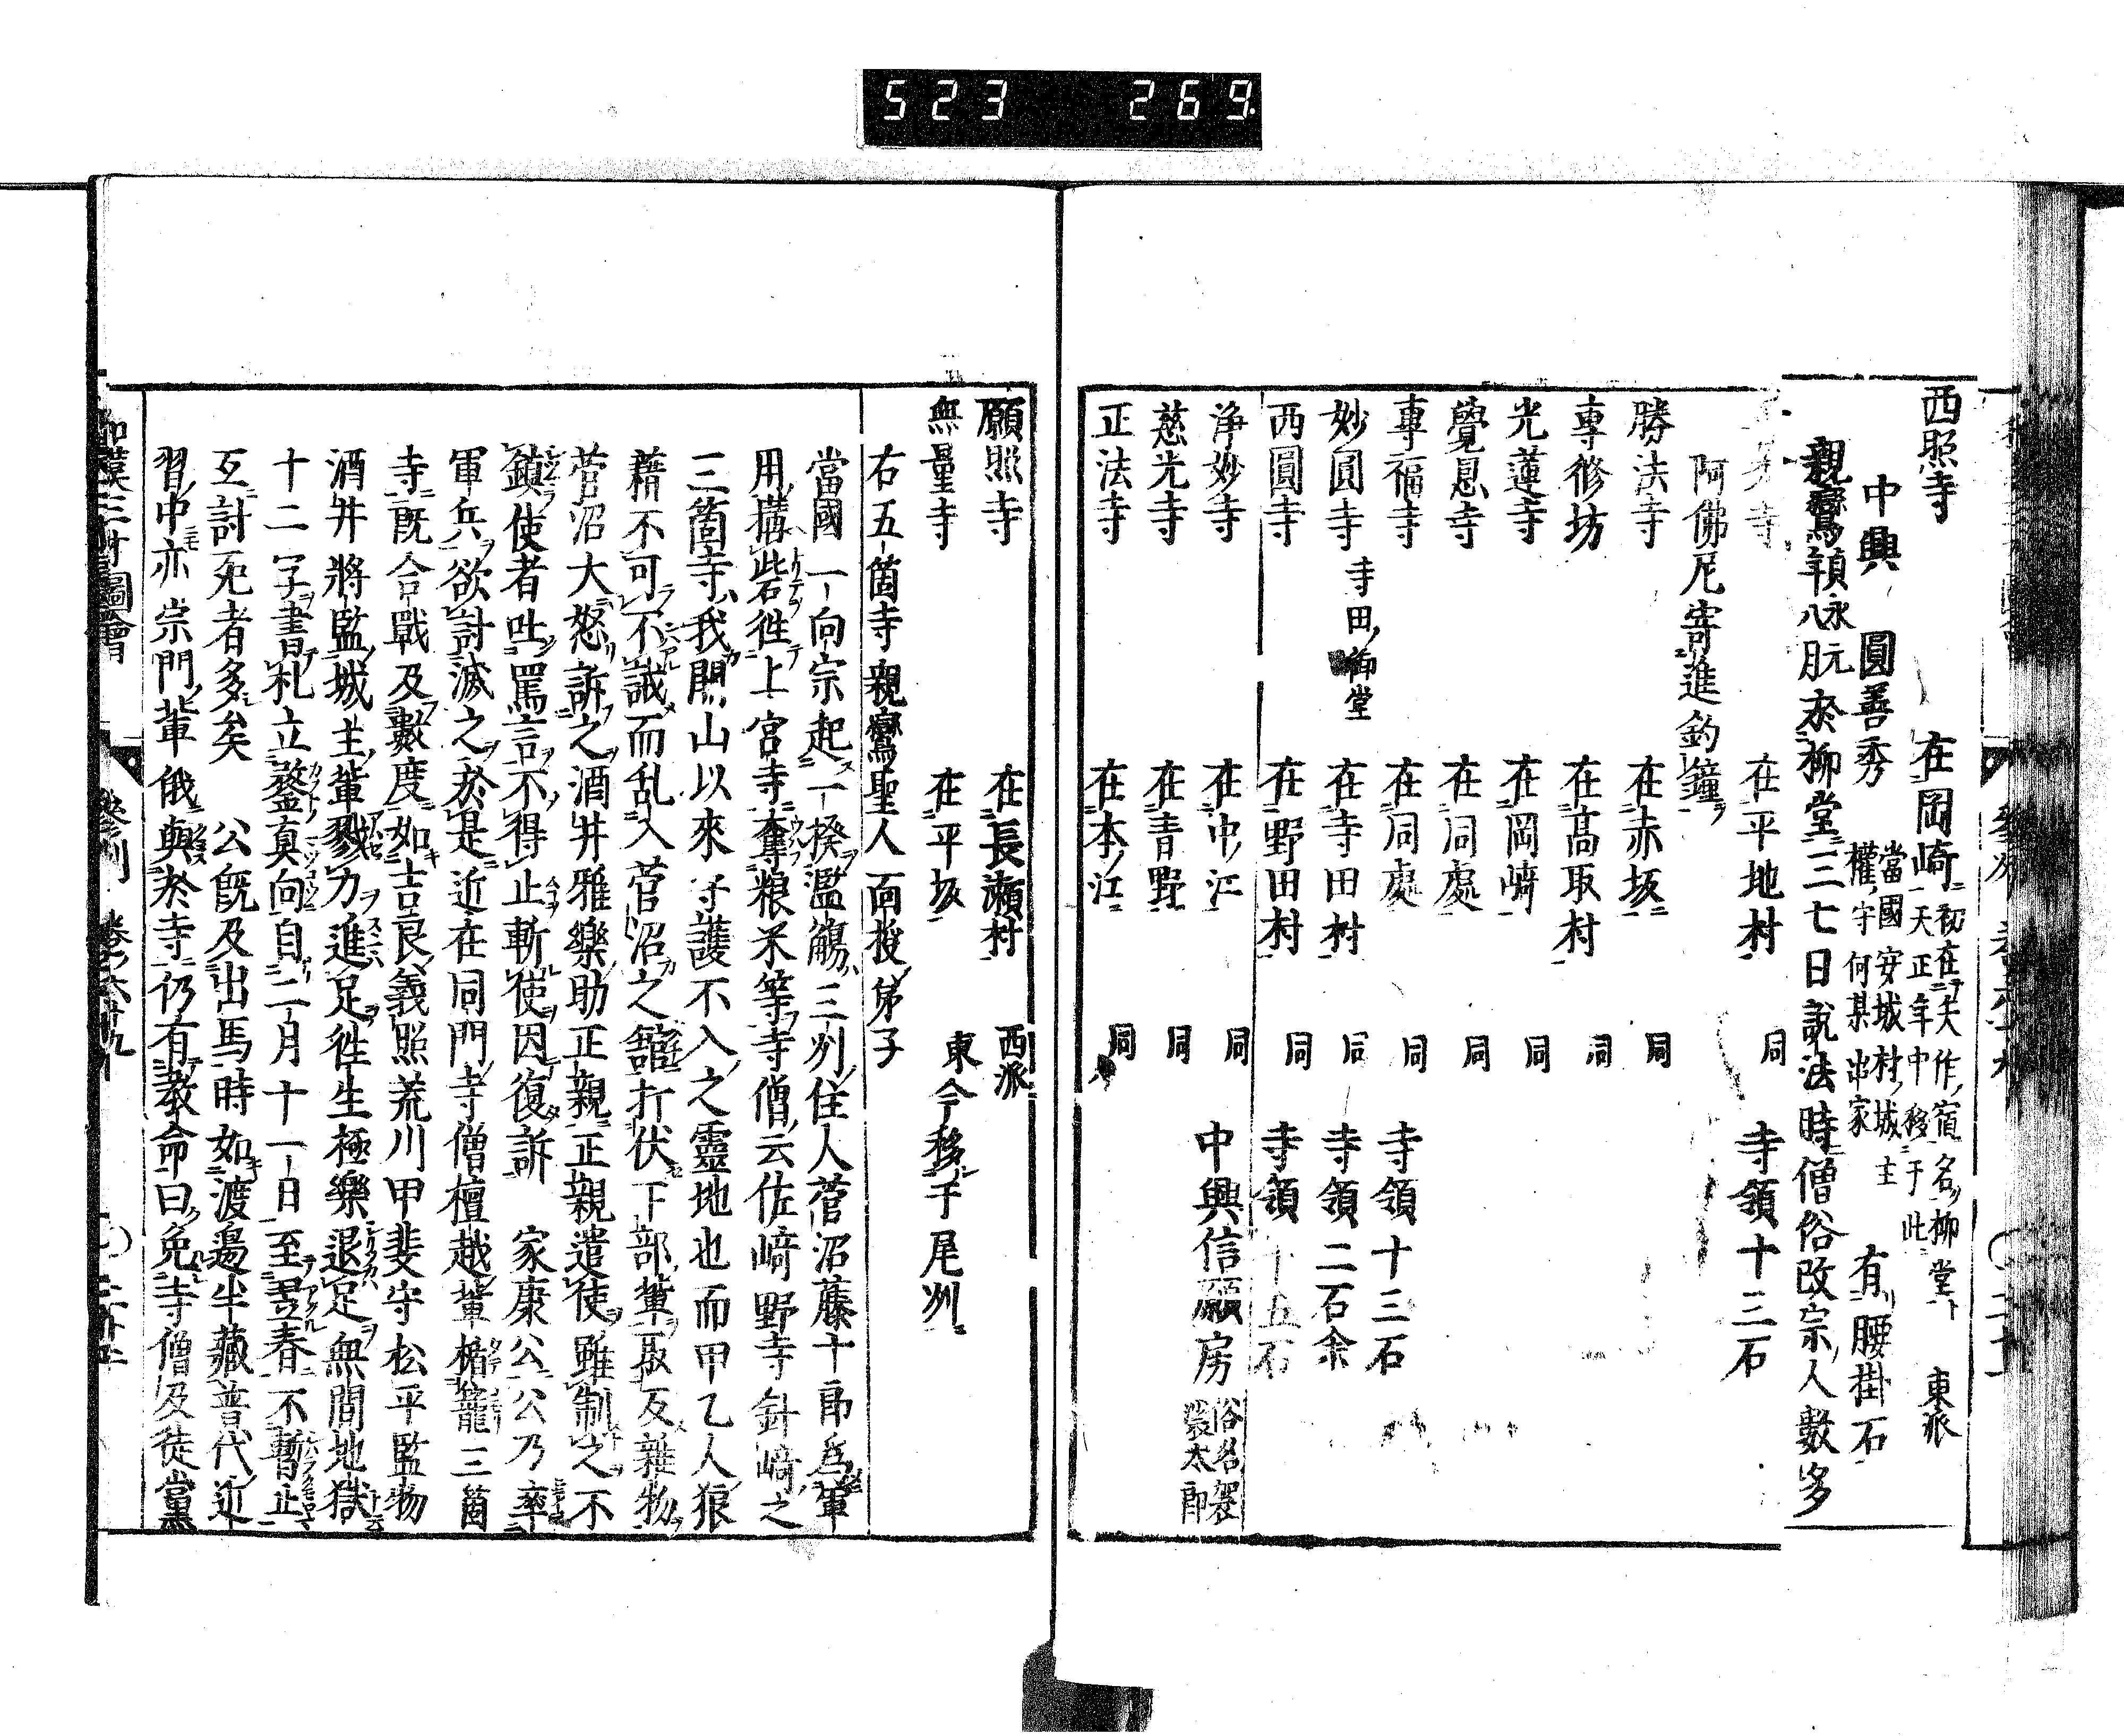 523 269
西照寺 在岡崎 初在矢作宿名柳堂 天正年中移于此 東派
中興 圓善秀 當國安城村城主 權守何某出家 有腰掛石
親鸞 於柳堂三七日說法時僧俗改宗人數多
寺 在平地村 同 寺領十三石
阿佛尼寄進釣鐘
勝法寺 在赤坂 同
專修坊 在高取村 同
光蓮寺 在岡﨑 同
覺恩寺 在同處 同
專福寺 在同處 同 寺領十三石
妙圓寺 寺田御堂 在寺田村 同 寺領二石余
西圓寺 在野田村 同 寺領 五石
淨妙寺 在中江 同 中興信願房 俗名 太郎
慈光寺 在青野 同
正法寺 在本江 同
願照寺 在長瀬村 西派
無量寺 在平坂 東今移于尾州
右五箇寺親鸞聖人面授弟子
當國一向宗起一揆濫觴三州住人菅沼藤十郎爲軍
用搆砦徃上宮寺奪粮米等寺僧云佐﨑野寺針﨑之
三箇寺我開山以來守護不入之靈地也而甲乙人狼
藉不可不誡而乱入菅沼之舘打伏下部輩取反雜物
菅沼大怒訴之酒井雅樂助正親正親遣使雖制之不
鎮使者吐罵言不得止斬使因復訴 家康公公乃率
軍兵欲討滅之於是近在同門寺僧檀越輩楯籠三箇
寺既合戰及數度如吉良義照荒川甲斐守松平監物
酒井將監城主輩戮力進足徃生極樂退足無間地獄
十二字書札立鍪真向自二月十一日至翌春不暫止
互討死者多矣 公既及出馬時如渡邉半藏普代近
習中亦宗門輩俄與於寺仍有教命曰免寺僧及徒黨
和漢三才圖會 參州 卷六十九